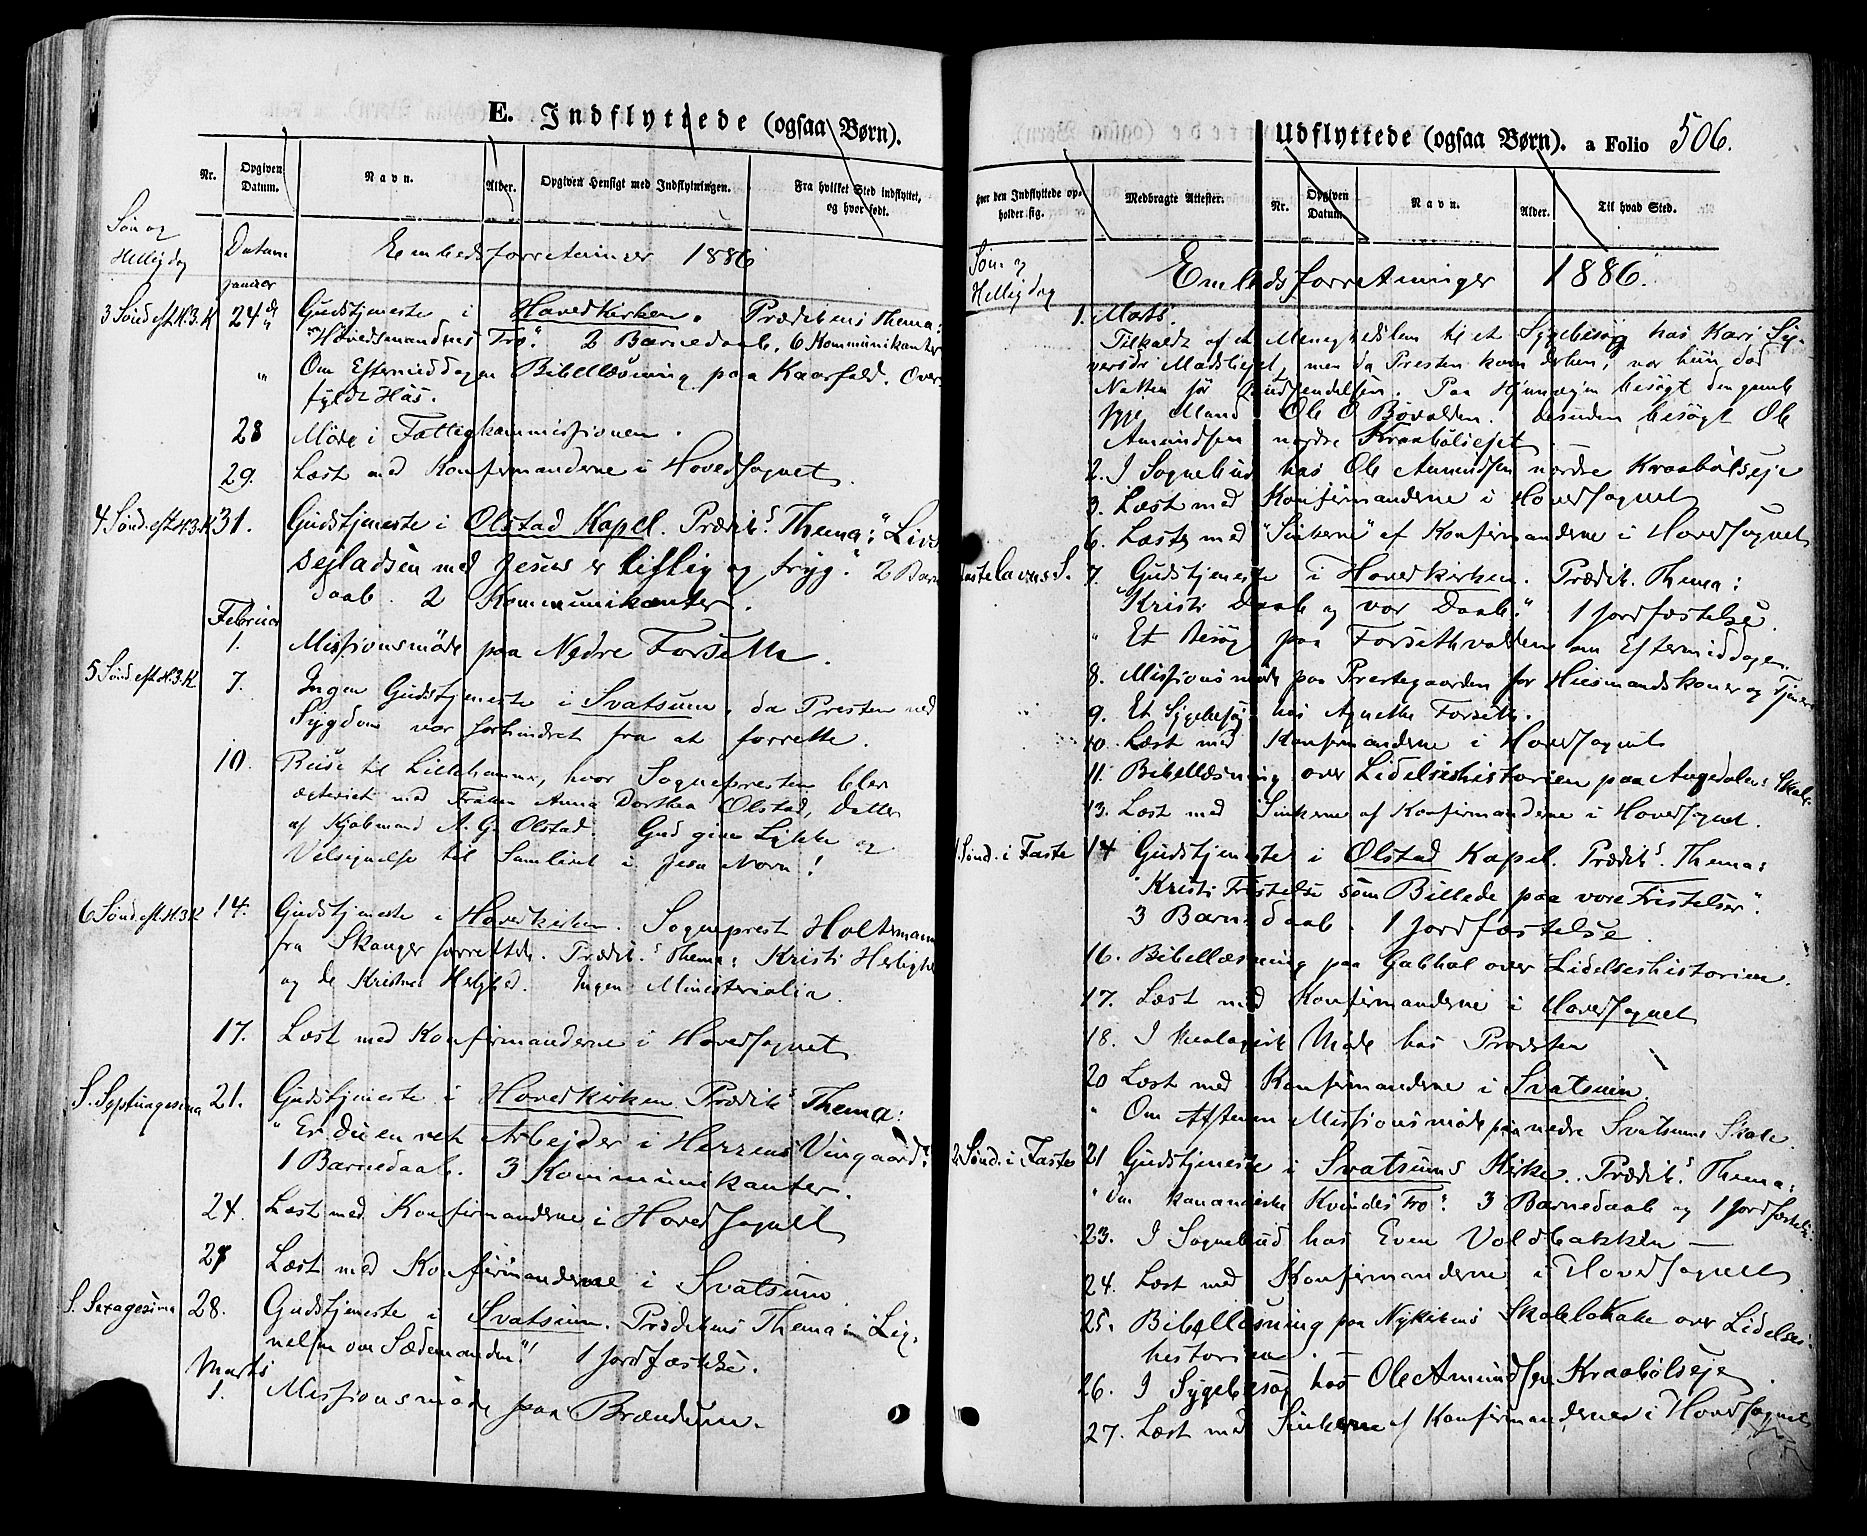 E. Indflyttede (ogsaa Børn).
Nr. Opgiven Datum. Navn. Alder. Opgiven Hensigt med Indflytningen. Fra hvilket Sted indflyttet, og hvor født.
Søn og Hellig dag Datum Embedsforretninger 1886
Januar
3 Sønd eft. H.3.K 24de Gudstjeneste i Hovedkirken. Prædikens Thema:
"Høvedsmandens Tro". 2 Barnedaab. 6 Kommunikanter
" Om Eftermiddagen Bibellæsning paa Kaarfald. Over-
fyldt Hus.
28 Möde i Fattigkommissionen.
29. Læst med Konfirmanderne i Hovedsognet.
4 Sönd. eft. H.3.K 31. Gudstjeneste i Olstad Kapel. Prædik.s Thema: "Livs
sejladsen med Jesus er liflig og tryg." 2 Barne
daab. 2 Kommunikanter.
Februar
1. Missionsmöde paa Nedre Forseth.
5 Sönd eft H.3.K 7. Ingen Gudstjeneste i Svatsum, da Presten ved
Sygdom var forhindret fra at forrette.
10. Reise til Lillehammer, hvor Sognepresten blev
ægteviet med Frøken Anna Dorthea Olstad, Datter
af Kjøbmand A. G. Olstad. Gud give Lykke og
Velsignelse til Samlivet i Jesu Navn!
6 Sönd. eft. H.3.K 14. Gudstjeneste i Hovedkirken. Sogneprest Holtermann
fra Skanger forrettede. Prædik.s Thema: Kristi Herlighed
og de Kristnes Herlighed. Ingen Ministerialia.
17. Læst med Konfirmanderne i Hovedsognet.
S. Septuagesima 21. Gudstjeneste i Hovedkirken. Prædik.s Thema:
"Er du en ret Arbejder i Herrens Vingaard?"
1 Barnedaab. 3 Kommunikanter.
24. Læst med Konfirmanderne i Hovedsognet
27 Læst med Konfirmanderne i Svatsum.
S. Sexagesima 28. Gudstjeneste i Svatsum. Prædikens Thema: "Lig-
nelsen om Sædemanden"! 1 Jordfæstelse.
Marts
1. Missionsmöde paa Brændum.
Udflyttede (ogsaa Børn). a Folio 506.
Hvor den Indflyttede opholder sig. Medbragte Attester. Nr. Opgiven Datum. Navn. Alder. Til hvad Sted.
Søn- og Hellig dag Embedsforretninger 1886.
1. Marts.
Tilkaldt af et Menighedslem til et Sygebesøg hos Kari Sy-
versdr Madslıejet, men da Presten kom derhen, var hun død
Natten før Budsendelsen. Paa Hjemvejen besøgt den gamle
syge Mand Ole O. Bøvolden. Desuden besøgt Ole
Amundsen nordre Kraabölsejet
2. I Sognebud hos Ole Amundsen nordre Kraabölseje
3. Læst med Konfirmanderne i Hovedsognet
6. Læst med "Sinkerne" af Konfirmanderne i Hovedsognet
Fastelavns S. 7. Gudstjeneste i Hovedkirken. Prædik. Thema:
"Kristi Daab og vor Daab." 1 Jordfæstelse.
" Et Besög paa Forsethvolden om Eftermiddagen.
8. Missionsmöde paa Prestegaarden for Husmandskoner og Tjenere
9. Et Sygebesög hos Agnethe Forseth.
10. Læst med Konfirmanderne i Hovedsognet
11. Bibellæsning over Lidelseshistorien paa Augedalens Skole
13. Læst med Sinkerne af Konfirmanderne i Hovedsognet.
1 Sönd. i Faste 14 Gudstjeneste i Olstad Kapel. Prædik.s Thema:
"Kristi Fristelse som Billede paa vore Fristelser".
3 Barnedaab. 1 Jordfæstelse.
16. Bibellæsning paa Gabhol over Lidelseshistorien.
17. Læst med Konfirmanderne i Hovedsognet
18. I theologisk Möde hos Provsten
20 Læst med Konfirmanderne i Svatsum.
" Om Aftenen Missionsmöde paa nedre Svatsums Skole.
2 Sönd. i Faste 21 Gudstjeneste i Svatsums Kirke. Prædik.s Thema:
"Den kananæiske Kvindes Tro". 3 Barnedaab og 1 Jordfæstelse
23. I Sognebud hos Even Voldbakken —
24. Læst med Konfirmanderne i Hovedsognet
25. Bibellæsning paa Nykirkens Skolelokale over Lidelses-
historien. —
26. I Sygebesøg hos Ole Amundsen Kraabölseje.
27. Læst med Sinkerne af Konfirmanderne i Hovedsognet